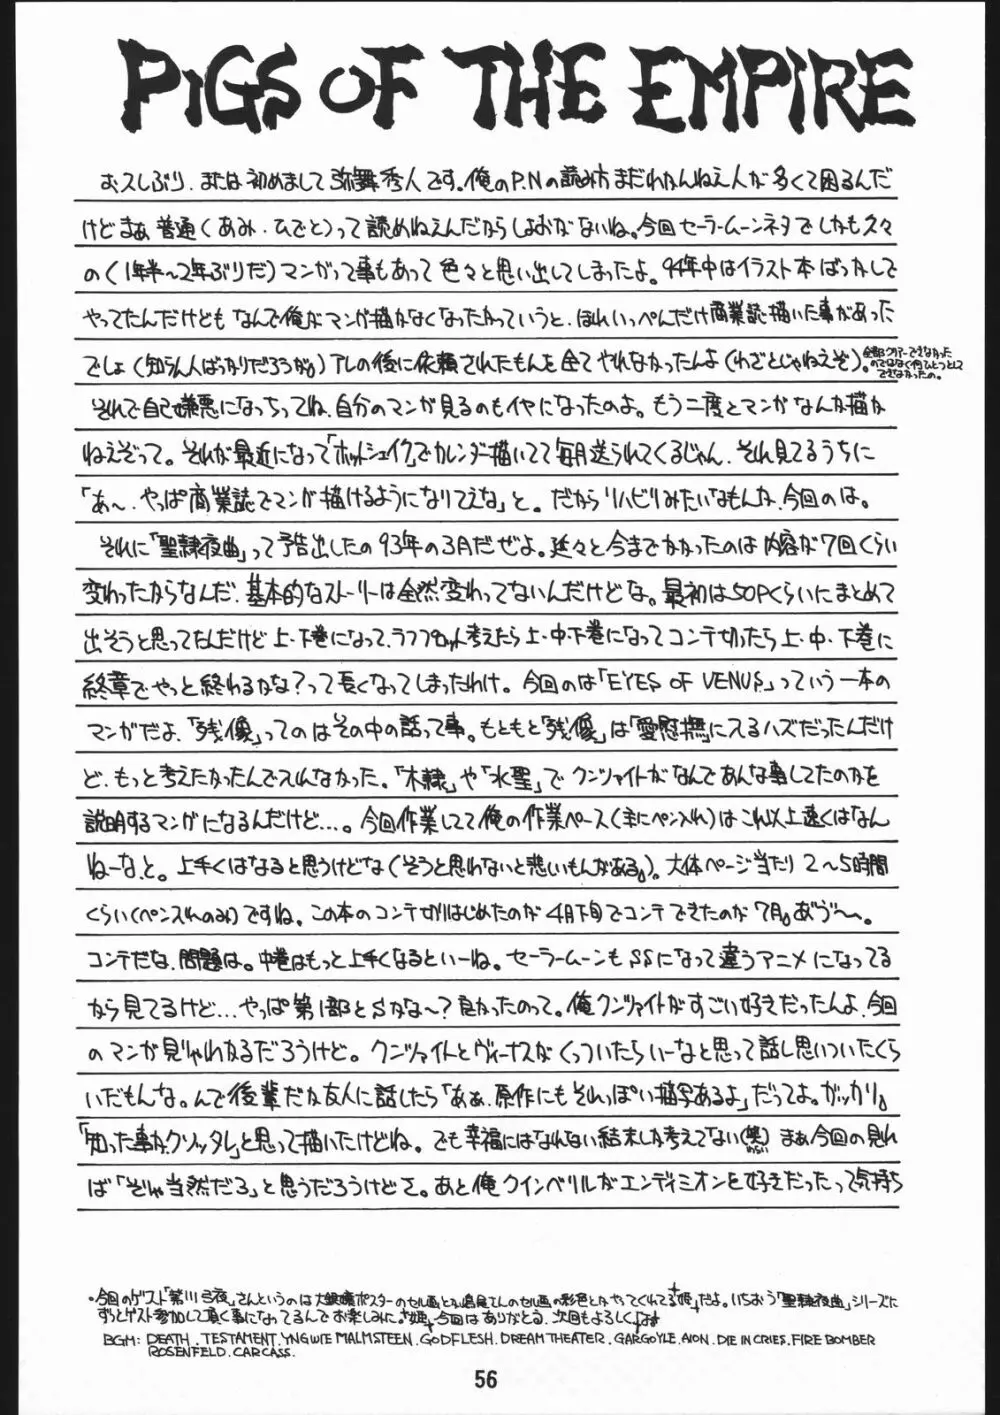 PIGS OF THE EMPIRE
お久しぶり、または初めまして弥舞秀人です。俺のP.Nの読み方まだわかんねえ人が多くて困るんだ
けどまぁ普通(あみ・ひでと)って読めねえんだからしょおがないね。今回セーラームーンネタでしかも久々
の(1年半〜2年ぶりだ)マンガって事もあって色々と思い出してしまったよ。94年中はイラスト本ばっかして
やってたんだけどもなんで俺がマンガ描かなくなったかっていうと、ほれいっぺんだけ商業誌描いた事があった
でしょ(知らん人ばっかりだろうが。)TLの後に依頼されたもんを全てやれなかったんよ(わざとじゃねえぞ)。
全部クリアーできなかった
のではなく何ひとつとして
できなかったの。
それで自己嫌悪になっちってね、自分のマンガ見るのもイヤになったのよ。もう二度とマンガなんか描か
ねえぞって。それが最近になって「ホットシェイク」でカレンダー描いてて毎月送られてくるじゃん、それ見てるうちに
「あ〜、やっぱ商業誌でマンガ描けるようになりてえな」と。だからリハビリみたいなもんか、今回のは。
それに「聖隷夜曲」って予告出したの93年の3月だぜよ。延々と今までかかったのは内容が7回くらい
変わったからなんだ、基本的なストーリーは全然変わってないんだけどな。最初は50Pくらいにまとめて
出そうと思ってたんだけど上・下巻になって、ラフプロット考えたら上・中・下巻になってコンテ切ったら上・中・下巻に
終章でやっと終わるかな?って長くなってしまったわけ。今回のは「EYES OF VENUS」っていう一本の
マンガだよ、「残像」ってのはその中の話って事。もともと「残像」は「愛慰撫」に入るハズだったんだけ
ど、もっと考えたかったんで入れなかった。「木隷」や「水聖」でクンツァイトがなんであんな事してたのかを
説明するマンガになるんだけど…。今回作業してて俺の作業ペース(主にペン入れ)はこれ以上速くはなん
ねーな、と。上手くはなると思うけどな(そうと思わないと悲しいもんがある。)。大体ページ当たり2〜5時間
くらい(ペン入れのみ)ですね。この本のコンテ切りはじめたのが4月下旬でコンテできたのが7月。あ゛う゛〜。
コンテだな、問題は。中巻はもっと上手くなるといーね。セーラームーンもSSになって違うアニメになってる
から見てるけど…やっぱ第1部とSかな〜?良かったのって。俺クンツァイトがすごい好きだったんよ、今回
のマンガ見じゃわかるだろうけど。クンツァイトとヴィーナスがくっついたらいーなと思って話し思いついたくら
いだもんな。んで後輩だか友人に話したら「あぁ、原作にもそれっぽい描写あるよ」だってよ。ガッカリ。
「知った事かクソッタレ」と思って描いたけどね。でも幸福にはなれない結末しか考えてない(笑)まぁ今回の見れ
わらい
ば「そりゃ当然だろ」と思うだろうけどさ。あと俺クインベリルがエンディミオンを好きだったって気持ち
・今回のゲスト「紫川弓夜」さんというのは大銀嬢ポスターのセル画とか島尾さんのセル画の彩色とかやってくれてる姫だよ。いちおう「聖隷夜曲」シリーズに
ずっとゲスト参加して頂く事になってるんでお楽しみに。姫、今回はありがとう、次回もよろしく。
BGM: DEATH. TESTAMENT. YNGWIE MALMSTEEN. GODFLESH. DREAM THEATER. GARGOYLE. AION. DIE IN CRIES. FIRE BOMBER
ROSENFELD. CARCASS.
56